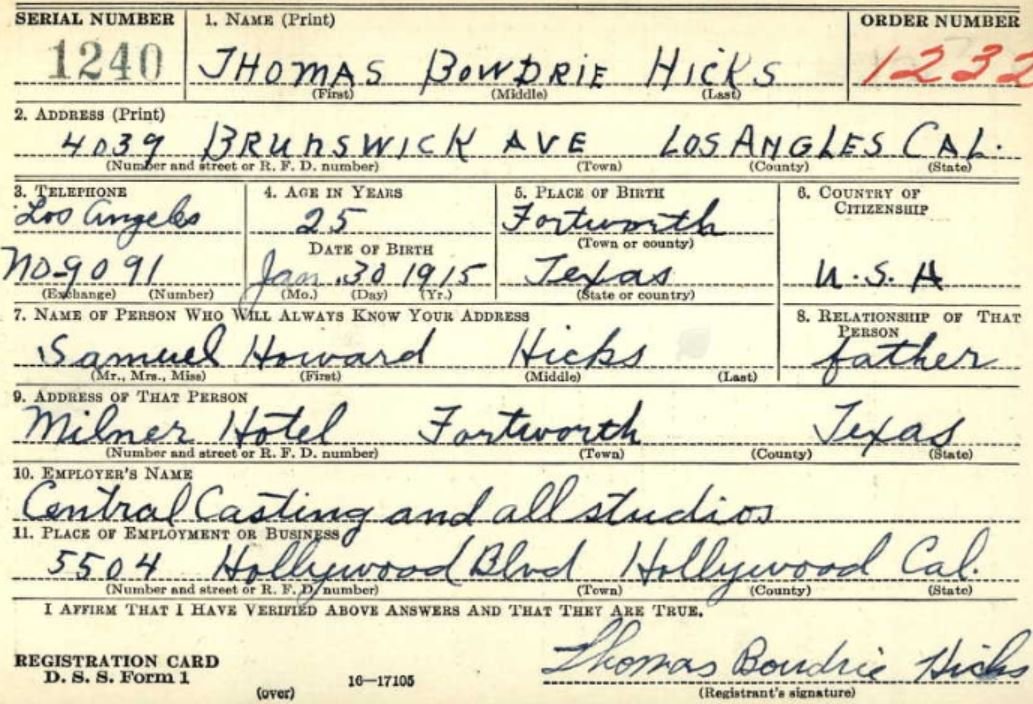 SERIAL NUMBER 1. NAME (Print) ORDER NUMBER
1240 THOMAS BOWDRIE HICKS 1232
(First) (Middle) (Last)
2. ADDRESS (Print)
4039 BRUNSWICK AVE LOS ANGLES CAL.
(Number and street or R. F. D. number) (Town) (County) (State)
3. TELEPHONE 4. AGE IN YEARS 5. PLACE OF BIRTH 6. COUNTRY OF CITIZENSHIP
Los Angeles 25 Fortworth
DATE OF BIRTH (Town or county)
NO-9091 Jan. 30 1915 Texas U.S.A
(Exchange) (Number) (Mo.) (Day) (Yr.) (State or country)
7. NAME OF PERSON WHO WILL ALWAYS KNOW YOUR ADDRESS 8. RELATIONSHIP OF THAT PERSON
Samuel Howard Hicks father
(Mr., Mrs., Miss) (First) (Middle) (Last)
9. ADDRESS OF THAT PERSON
Milner Hotel Fortworth Texas
(Number and street or R. F. D. number) (Town) (County) (State)
10. EMPLOYER'S NAME
Central Casting and all studios
11. PLACE OF EMPLOYMENT OR BUSINESS
5504 Hollywood Blvd Hollywood Cal.
(Number and street or R. F. D. number) (Town) (County) (State)
I AFFIRM THAT I HAVE VERIFIED ABOVE ANSWERS AND THAT THEY ARE TRUE.
REGISTRATION CARD
D. S. S. Form 1 Thomas Bowdrie Hicks
(over) 16—17105 (Registrant's signature)